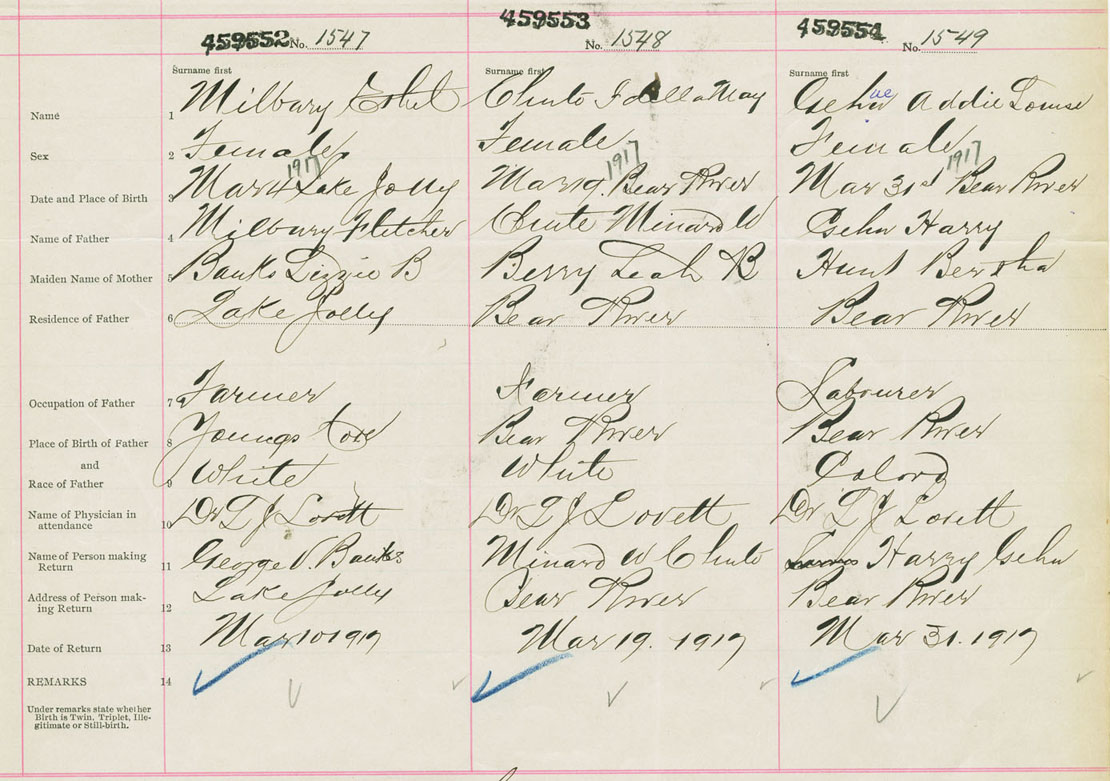 459552 No. 1547
459553 No. 1548
459554 No. 1549
Surname first Surname first Surname first
Name 1 Milbury Ethel Chute Idella May Gehue Addie Louise
Sex 2 Female Female Female
1917 1917 1917
Date and Place of Birth 3 Mar 4 Lake Jolly Mar 19. Bear River Mar 31st Bear River
Name of Father 4 Milbury Fletcher Chute Minard W Gehu Harry
Maiden Name of Mother 5 Banks Lizzie B Berry Leah B Hunt Bertha
Residence of Father 6 Lake Jolly Bear River Bear River
Occupation of Father 7 Farmer Farmer Labourer
Place of Birth of Father 8 Youngs Cove Bear River Bear River
and
Race of Father 9 White White Colord
Name of Physician in
attendance 10 Dr L J Lovett Dr L J Lovett Dr L J Lovett
Name of Person making
Return 11 George V. Banks Minard W Chute Harry Gehu
Address of Person mak-
ing Return 12 Lake Jolly Bear River Bear River
Date of Return 13 Mar 10 1917 Mar 19. 1917 Mar 31. 1917
REMARKS 14
Under remarks state whether
Birth is Twin, Triplet, Ille-
gitimate or Still-birth.